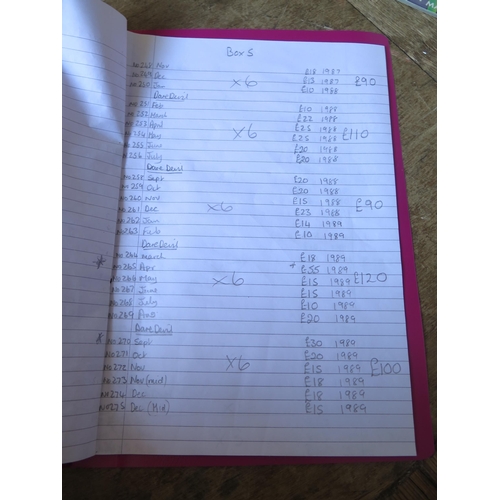 Box 5
No 248 Nov £18 1987
No 249 Dec x6 £13 1987 £90
No 250 Jan £10 1988
Dare Devil
No 251 Feb £10 1988
No 252 March £22 1988
No 253 April x6 £25 1988 £110
No 254 May £25 1988
No 255 June £20 1988
No 256 July £20 1988
Dare Devil
No 258 Sept £20 1988
No 259 Oct £20 1988
No 260 Nov £15 1988 £90
No 261 Dec x6 £23 1988
No 262 Jan £14 1989
No 263 Feb £10 1989
Dare Devil
* No 264 March £18 1989
No 265 Apr + £55 1989
No 266 May x6 £15 1989 £120
No 267 June £15 1989
No 268 July £10 1989
No 269 Aug £20 1989
Dare Devil
* No 270 Sept £30 1989
No 271 Oct £20 1989
No 272 Nov x6 £15 1989 £100
No 273 Nov (mid) £18 1989
No 274 Dec £18 1989
No 275 Dec (Mid) £15 1989